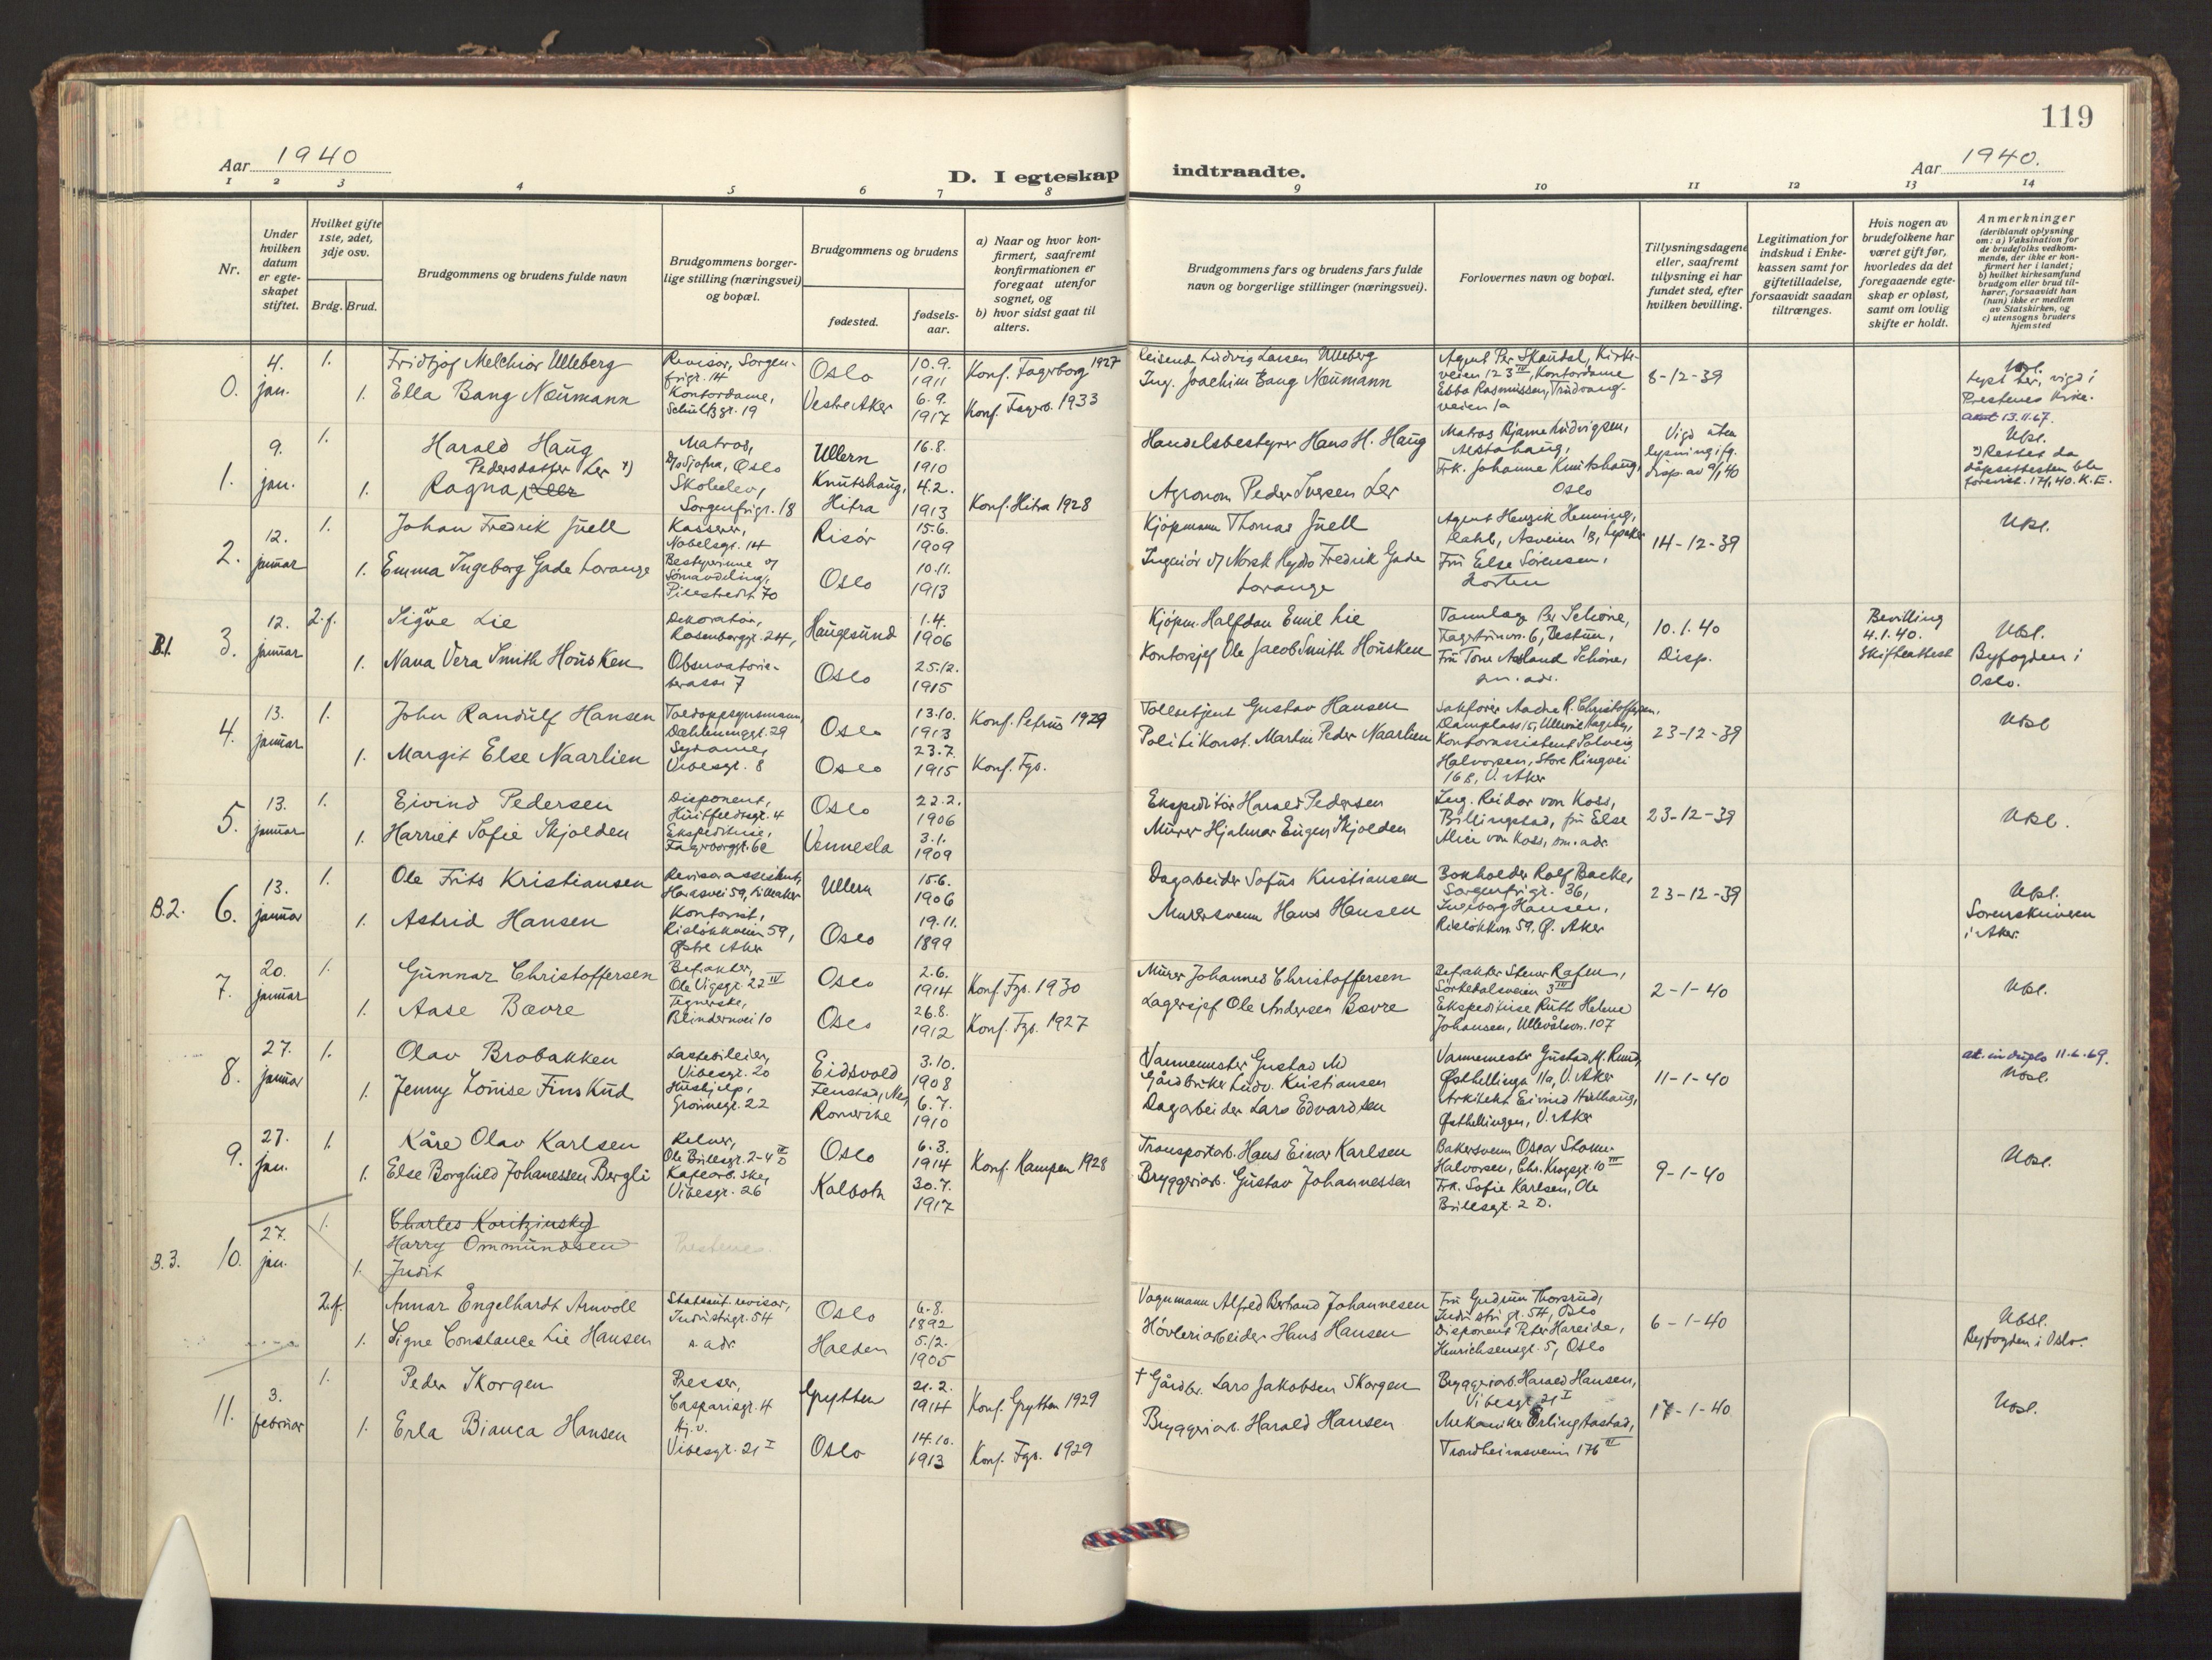 119
Aar 1940
D. I egteskap indtraadte.
Aar 1940.
1 2 3 4 5 6 7 8 9 10 11 12 13 14
Nr.
Under hvilken datum er egteskapet stiftet.
Hvilket gifte 1ste, 2det, 3dje osv.
Brdg. Brud.
Brudgommens og brudens fulde navn
Brudgommens borgerlige stilling (næringsvei) og bopæl.
Brudgommens og brudens
fødested.
fødselsaar.
a) Naar og hvor konfirmert, saafremt konfirmationen er foregaat utenfor sognet, og
b) hvor sidst gaat til alters.
Brudgommens fars og brudens fars fulde navn og borgerlige stillinger (næringsvei).
Forlovernes navn og bopæl.
Tillysningsdagene eller, saafremt tillysning ei har fundet sted, efter hvilken bevilling.
Legitimation for indskud i Enkekassen samt for giftetilladelse, forsaavidt saadan tiltrænges.
Hvis nogen av brudefolkene har været gift før, hvorledes da det foregaaende egteskap er opløst, samt om lovlig skifte er holdt.
Anmerkninger (deriblandt oplysning om: a) Vaksination for de brudefolks vedkommende, der ikke er konfirmert her i landet; b) hvilket kirkesamfund brudgom eller brud tilhører, forsaavidt han (hun) ikke er medlem av Statskirken, og c) utensogns bruders hjemsted
0. 4. jan. 1. Fridtjof Melchior Ulleberg Revisor, Sorgenfrigt. 14 Oslo 10.9. 1911 Konf. Fagerborg 1927 Reisende Ludvig Larsen Ulleberg Agent Per Skaudal, Kirkeveien 123 IV, Kontordame 8-12-39
1. Ella Bang Neumann Kontordame, Schultzgt. 19 Vestre Aker 6.9. 1917 Konf. Fagerb. 1933 Ing. Joachim Bang Neumann Ebba Rasmussen, Trudvangveien 1a Lyst her, vigd i Prestenes Kirke. 13.11.67.
1. 9. jan. 1. Harald Haug Matros, D/s Sjofna, Oslo Ullern 16.8. 1910 Handelsbestyrer Hans H. Haug Matros Bjarne Ludvigsen, Alstahaug, Vigd uten lysning ifg. disp. av 9/1 40 Ubl.
1. Ragna Pedersdatter Ler x) Skoleelev, Sorgenfrigt. 18 Knutshaug, Hitra 4.2. 1913 Konf. Hitra 1928 Agronom Peder Iversen Ler Frk. Johanna Knutshaug, Oslo x) Rettet da dåpsattesten ble
2. 12. januar 1. Johan Fredrik Juell Kasserer, Nobelsgt. 14 Risør 15.6. 1909 Kjøpmann Thomas Juell Agent Henrik Henning, Dahl, Åsveien 13, Lysaker 14-12-39 Ubl.
1. Emma Ingeborg Gade Lorange Pilestredet 70 Oslo 10.11. 1913 Ingeniør v/ Norsk Hydro Fredrik Gade Lorange Fru Else Sørensen, Horten
B.1. 3. 12. januar 2.f. Sigve Lie Dekoratør, Rosenborggt. 24, Haugesund 1.4. 1906 Kjøpm. Halfdan Emil Lie Tannlæge Per Schøne, 6, Vestum, 10.1.40 Disp. Bevilling 4.1.40. Skifteattest Ubl. Byfogden i Oslo.
1. Nana Vera Smith Housken Observatorieterasse 7 Oslo 25.12. 1915 Kontorsjef Ole Jacob Smith Housken Fru Tone Aasland Schøne, sm. adr.
4. 13. januar 1. John Randulf Hansen Toldopsynsmann, Dæhlenenggt. 29 Oslo 13.10. 1913 Konf. Petrus 1929 Tollbetjent Gustav Hansen Damplass 15, Ullevål Hageby, 23-12-39 Ubl
1. Margit Else Naarlien Sydame, Vibesgt. 8 Oslo 23.7. 1915 Konf. Fgb. Politikonst. Martin Peder Naarlien Kontorassistent Solveig Halvorsen, Store Ringvei 16 B, V. Aker
5. 13. januar 1. Eivind Pedersen Disponent, Huitfeldtsgt. 4 Oslo 22.2. 1906 Ekspeditør Harald Pedersen Ing. Reidar von Koss, Billingstad, fru Else 23-12-39 Ubl.
1. Harriet Sofie Skjolden Ekspeditrise, Fagerborggt. 6c Vennesla 3.1. 1909 Murer Hjalmar Eugen Skjolden Alice von Koss, sm. adr.
B.2. 6. 13. januar 1. Ole Frits Kristiansen Revisorassistent, Ullern 15.6. 1906 Dagarbeider Sofus Kristiansen Bokholder Rolf Backe, Sorgenfrigt. 36, 23-12-39 Ubl. Sorenskriveren i Aker.
1. Astrid Hansen Kontorist, Risløkkveien 59, Østre Aker Oslo 19.11. 1899 Murersvenn Hans Hansen Ingeborg Hansen, Risløkkvn. 59, Ø. Aker
7. 20. januar 1. Gunnar Christoffersen Befrakter, Ole Vigsgt. 22 IV Oslo 2.6. 1914 Konf. Fgb. 1930 Murer Johannes Christoffersen Befrakter Steinar Rafen, Sørkedalsveien 3 III 2-1-40 Ubl.
1. Aase Bævre Tegnerske, Blindernvei 10 Oslo 26.8. 1912 Konf. Fgb. 1927 Lagersjef Ole Andersen Bævre Ekspeditrise Ruth Helene Johansen, Ullevålsvn. 107
8. 27. januar 1. Olav Brobakken Lastebileier, Vibesgt. 20 Eidsvold 3.10. 1908 Vannemester Gustav M Gårdbruker Ludv. Kristiansen Vannemester Gustav M. Rund, Østhellinga 11a, V. Aker 11-1-40 at. in duplo 11.6.69. Ubl.
1. Jenny Louise Finskud Hushjelp, Grønnegt. 22 Fenstad, Nes, Romerike 6.7. 1910 Dagarbeider Lars Edvardsen Arkitekt Eivind Østhellingen, V. Aker
9. 27. jan. 1. Kåre Olav Karlsen Kelner, Ole Bullsgt. 2-4 Oslo 6.3. 1914 Konf. Kampen 1928 Transportarb. Hans Einar Karlsen Bakersvenn Oscar Halvorsen, Chr. Krogsgt. 10 III 9-1-40 Ubl.
1. Else Borghild Johanessen Bergli Kafearb.ske, Vibesgt. 26 Kolbotn 30.7. 1917 Bryggeriarb. Gustav Johannessen Frk. Sofie Karlsen, Ole Bullsgt. 2 D.
B.3. 10. 27. jan. 1. Charles Koritzinsky
Harry Ommundsen
1. Judit
2.f. Annar Engelhardt Arnvoll Statsaut. revisor, Industrigt. 54 Oslo 6.8. 1892 Vognmann Alfred Bertrand Johannesen Fru Gudrun Thorsrud, Industrigt. 54, Oslo 6-1-40 Ubl. Byfogden i Oslo.
1. Signe Constance Lie Hansen s. adr. Halden 5.12. 1905 Høvleriarbeider Hans Hansen Disponent Peter Hareide, Henrichsensgt. 5, Oslo
11. 3. februar 1. Peder Skorgen Presser, Casparisgt. 4 Grytten 21.2. 1914 Konf. Grytten 1929 † Gårdbr. Lars Jakobsen Skorgen Bryggeriarb. Harald Hansen, Vibesgt. 21 I 17-1-40 Ubl.
1. Erla Bianca Hansen Vibesgt. 21 I Oslo 14.10. 1913 Konf. Fgb. 1929 Bryggeriarb. Harald Hansen Mekaniker Erling Aastad, Trondheimsveien 176 III